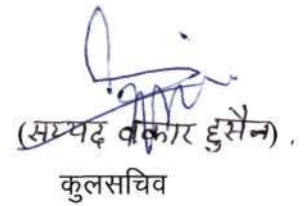 (सय्यद वकार हुसैन).
कुलसचिव